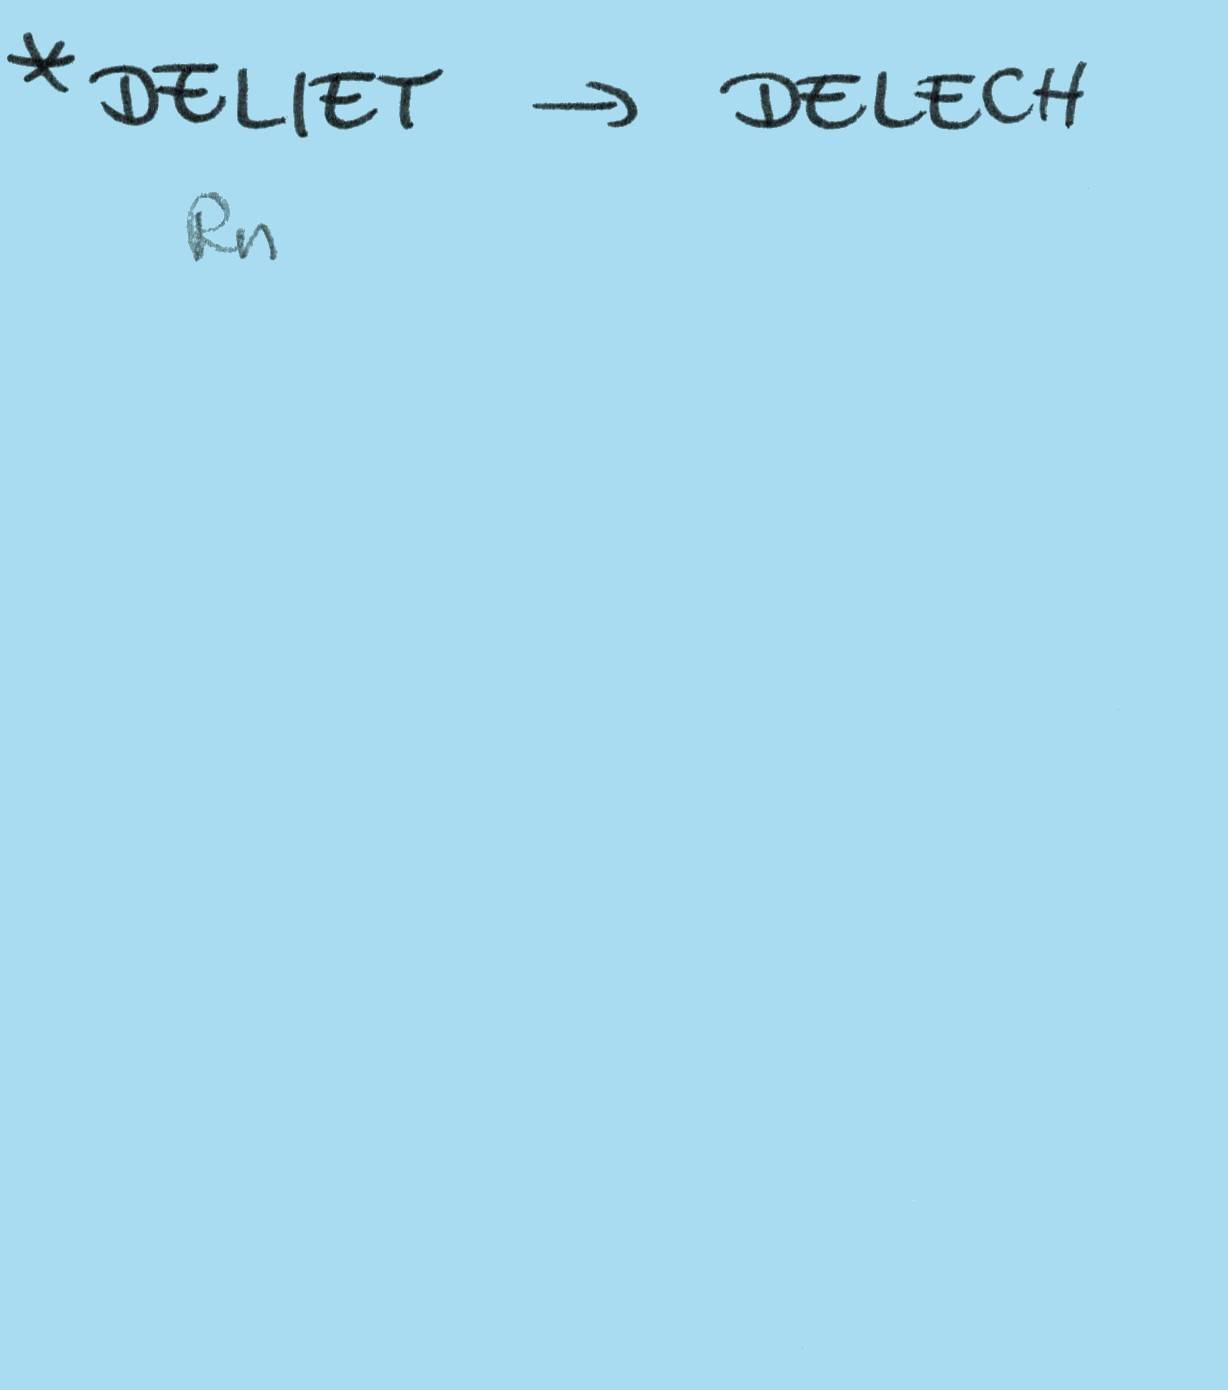 *DELIET → DELECH
Rn